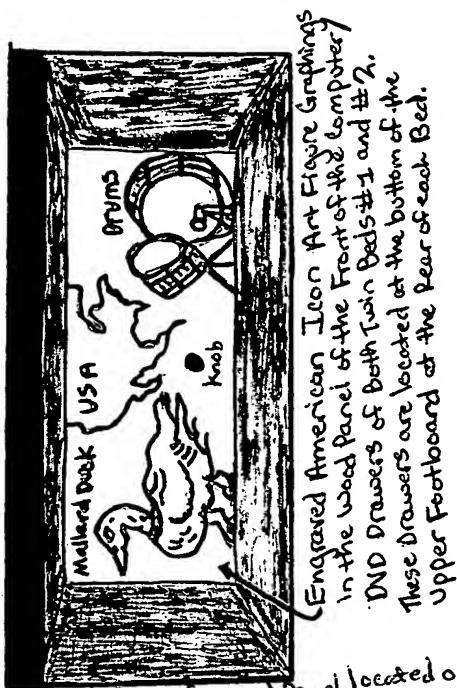 Mallard Duck
USA
Drums
Knob
Engraved American Icon Art Figure Graphings
In the Wood Panel of the Front of the Computer/
DVD Drawers of Both Twin Beds #1 and #2.
These Drawers are located at the buttom of the
Upper Footboard at the Rear of each Bed.
located o